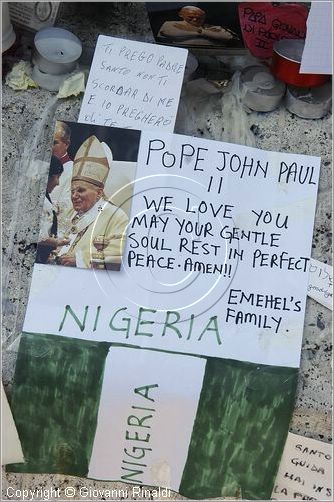 TI PREGO PADRE
SANTO NON TI
SCORDAR DI ME
E IO PREGHERÒ
PAPA
II
POPE JOHN PAUL
II
WE LOVE YOU
MAY YOUR GENTLE
SOUL REST IN PERFECT
PEACE. AMEN!!
EMEHEL'S
FAMILY.
NIGERIA
NIGERIA
SANTO
GUIDA
Copyright © Giovanni Rinaldi